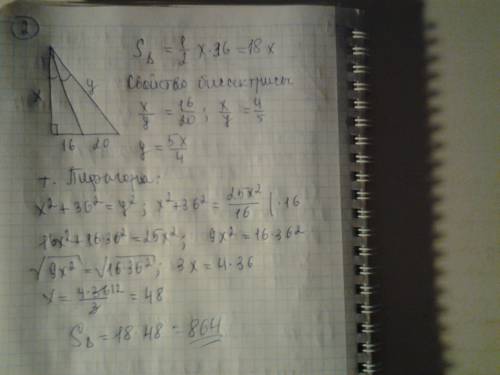 2
x
y
16 20
S_Δ = 1/2 x·36 = 18x
Свойство биссектрисы
x/y = 16/20; x/y = 4/5
y = 5x/4
т. Пифагора:
x²+36² = y²; x²+36² = 25x²/16 |·16
16x²+16·36² = 25x²; 9x² = 16·36²
√9x² = √16·36²; 3x = 4·36
x = 4·36 12/3 = 48
S_Δ = 18·48 = 864